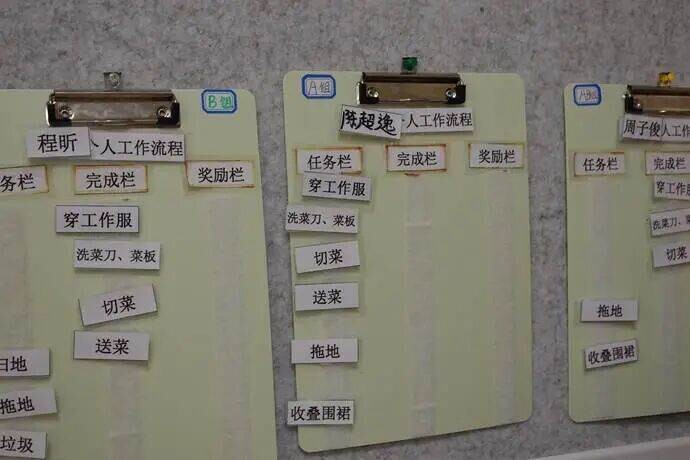 B组
程昕 个人工作流程
任务栏 完成栏 奖励栏
穿工作服
洗菜刀、菜板
切菜
送菜
扫地
拖地
垃圾
A组
陈超逸 个人工作流程
任务栏 完成栏 奖励栏
穿工作服
洗菜刀、菜板
切菜
送菜
拖地
收叠围裙
A组
周子俊 人工作流程
任务栏 完成栏
穿工作服
洗菜刀、
切菜
拖地
收叠围裙